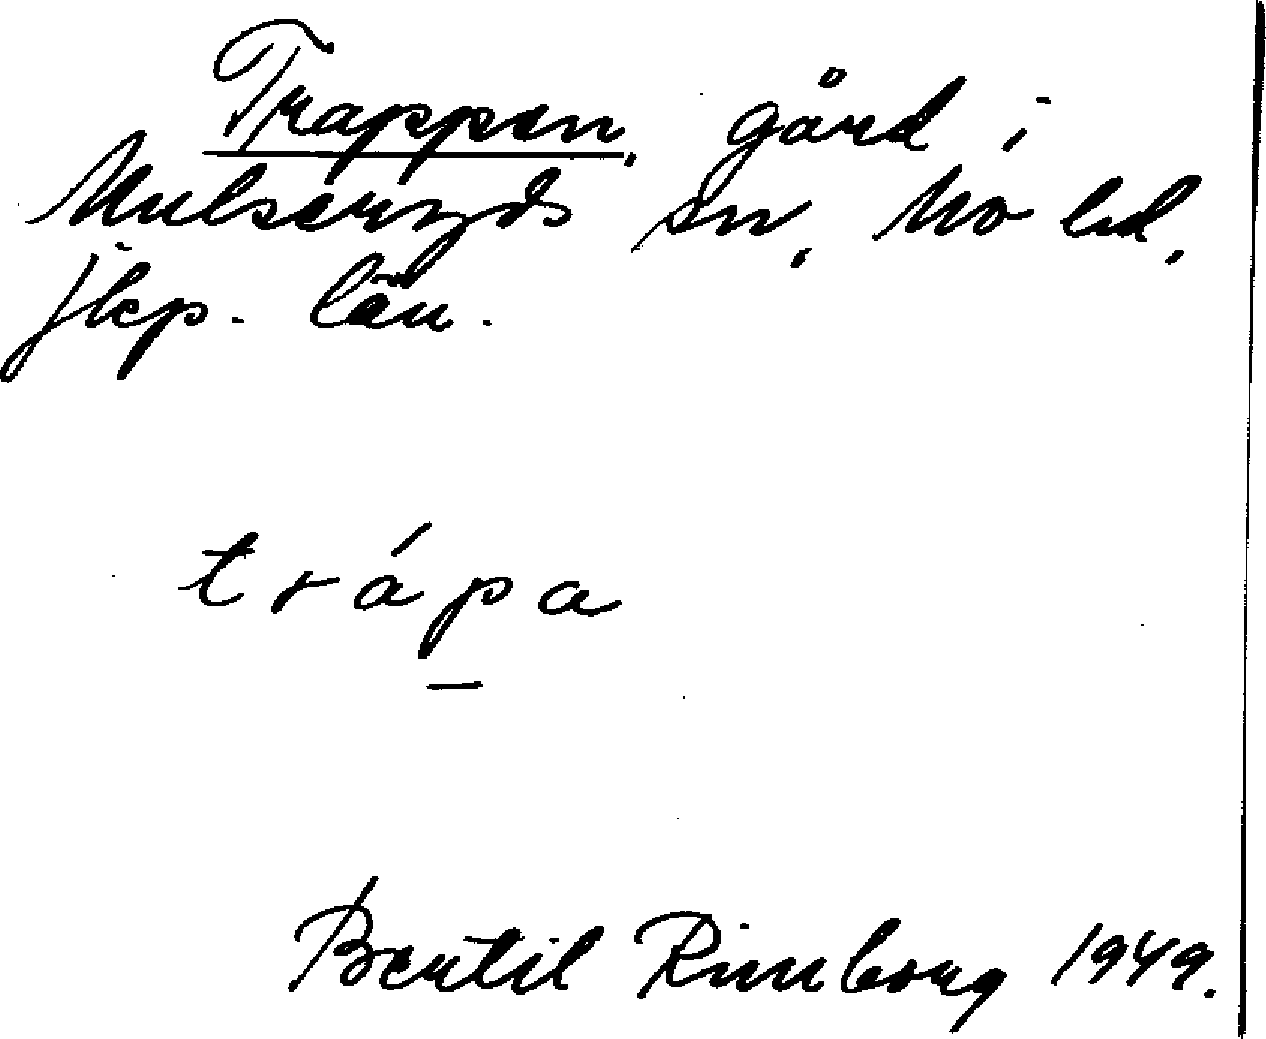 Trappen, gård i
Mulseryds sn, Mo hd,
Jkp. län.
trápa
Bertil Rimborg 1949.